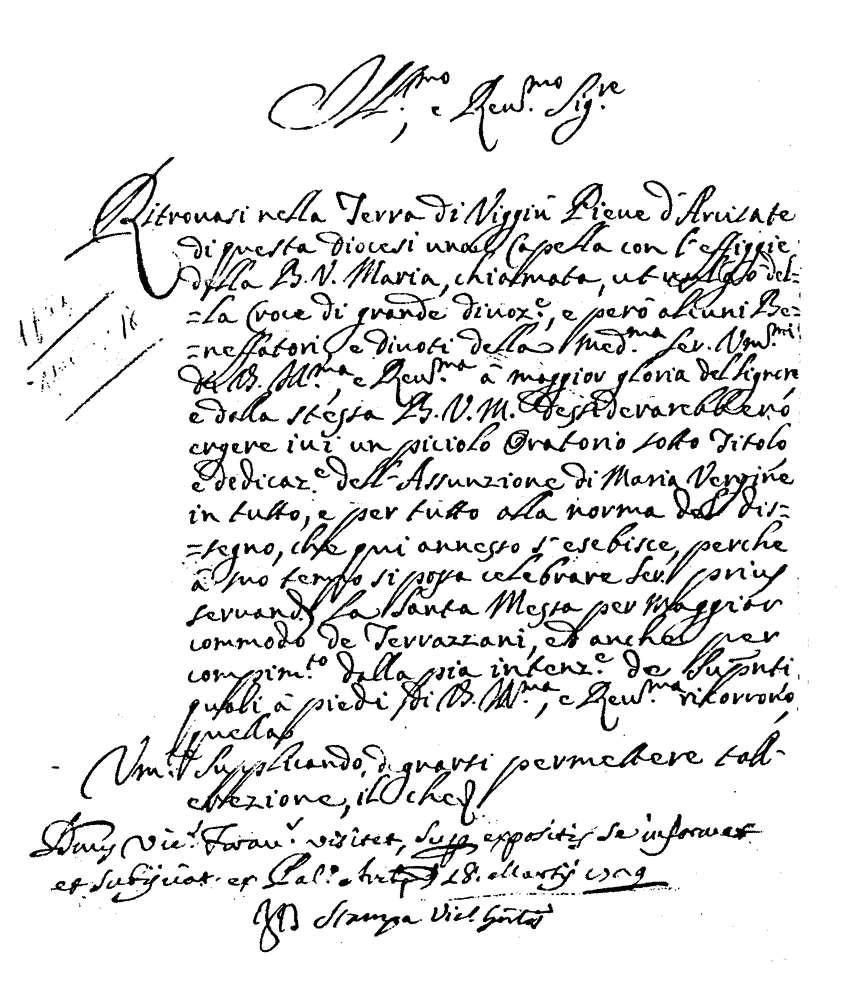 Ill.mo e Reu.mo Sig.re
Ritrouasi nella Terra di Viggiù Pieue d'Arcisate
di questa diocesi una Capella con l'effiggie
della B. V. Maria, chiamata, ut uulgo del=
=la Croce di grande diuoz.e, e però alcuni Be=
=neffatori, e diuoti della med.ma Ser. Vm.mi
di V. Ill.ma e Reu.ma à maggior gloria del Signore
e dalla stessa B. V. M. dessiderarebbero
ergere iui un piciolo Oratorio sotto Titolo
e dedicaz.e dell'Assunzione di Maria Vergine
in tutto, e per tutto alla norma del dis=
=segno, che qui annesso s'esebisce, perche
à suo tempo si possa celebrare ser. prius
seruand. la Santa Messa per Maggior
commodo de Terrazzani, ed anche per
compim.to dalla pia intenz.e de Supp.nti
quali à piedi di V. Ill.ma, e Reu.ma ricorrono,
quella
Vm.te Supplicando degnarsi permettere tall'
errezione, il che
visitet, sup. expositis se informet
et ex Pal.o 18. Martij 1729
Stampa Vic.